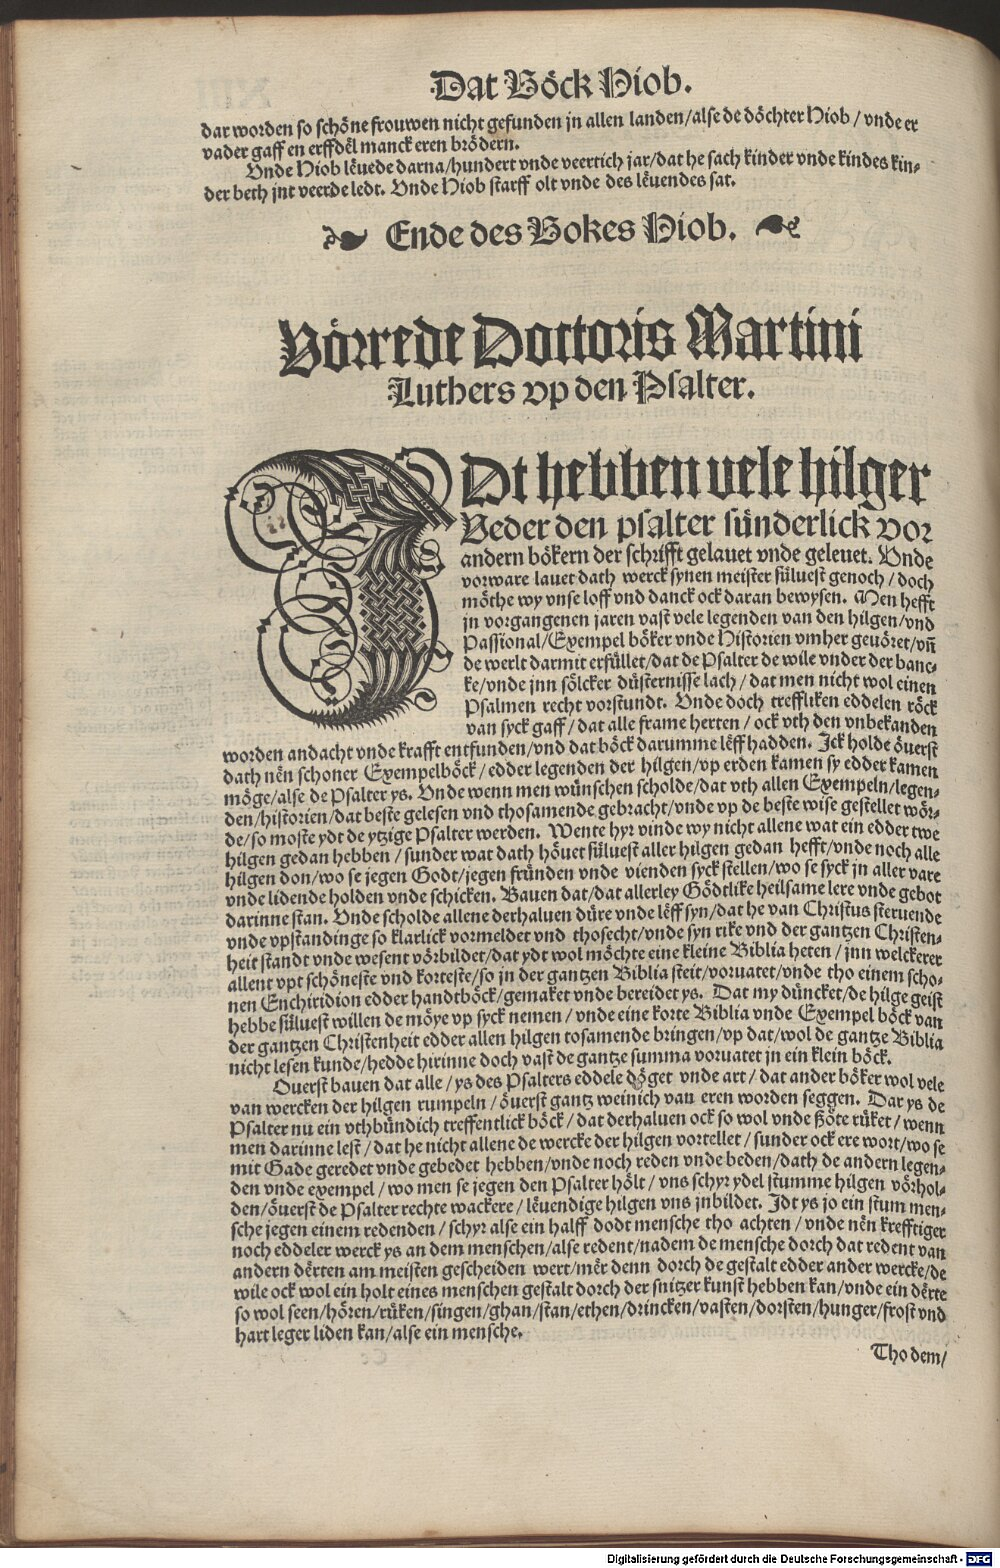 Dat Böck Hiob.
dar worden so schöne frouwen nicht gefunden jn allen landen/alse de döchter Hiob/vnde er
vader gaff en erffdël manck eren brödern.
Vnde Hiob lëuede darna/hundert vnde veertich jar/dat he sach kinder vnde kindes kin-
der beth jnt veerde ledt. Vnde Hiob starff olt vnde des lëuendes sat.
Ende des Bokes Hiob.
Vörrede Doctoris Martini
Luthers vp den Psalter.
IDt hebben vele hilger
Veder den psalter sünderlick vor
andern bökern der schrifft gelauet vnde geleuet. Vnde
vorware lauet dath werck synen meister süluest genoch/doch
möthe wy vnse loff vnd danck ock daran bewysen. Men hefft
jn vorgangenen jaren vast vele legenden van den hilgen/vnd
Passional/Exempel böker vnde Historien vmher gevöret/vn̄
de werlt darmit erfüllet/dat de Psalter de wile vnder der banc-
ke/vnde jnn sölcker düsternisse lach/dat men nicht wol einen
Psalmen recht vorstundt. Vnde doch treffliken eddelen röck
van syck gaff/dat alle frame herten/ock vth den vnbekanden
worden andacht vnde krafft entfunden/vnd dat böck darumme lëff hadden. Ick holde öuerst
dath nën schoner Exempelböck/edder legenden der hilgen/vp erden kamen sy edder kamen
möge/alse de Psalter ys. Vnde wenn men wünschen scholde/dat vth allen Exempeln/legen-
den/historien/dat beste gelesen vnd thosamende gebracht/vnde vp de beste wise gestellet wör-
de/so moste ydt de ytzige Psalter werden. Wente hyr vinde wy nicht allene wat ein edder twe
hilgen gedan hebben/sunder wat dath höuet süluest aller hilgen gedan hefft/vnde noch alle
hilgen don/wo se jegen Godt/jegen fründen vnde vienden syck stellen/wo se syck jn aller vare
vnde lidende holden vnde schicken. Bauen dat/dat allerley Gödtlike heilsame lere vnde gebot
darinne stan. Vnde scholde allene derhaluen düre vnde lëff syn/dat he van Christus steruende
vnde vpstandinge so klarlick vormeldet vnd thosecht/vnde syn rike vnd der gantzen Christen-
heit standt vnde wesent vörbildet/dat ydt wol möchte eine kleine Biblia heten/jnn welckerer
allent vpt schöneste vnd korteste/so jn der gantzen Biblia steit/voruatet/vnde tho einem scho-
nen Enchiridion edder handtböck/gemaket vnde bereidet ys. Dat my düncket/de hilge geist
hebbe süluest willen de möye vp syck nemen/vnde eine korte Biblia vnde Exempel böck van
der gantzen Christenheit edder allen hilgen tosamende bringen/vp dat/wol de gantze Biblia
nicht lesen kunde/hedde hirinne doch vast de gantze summa voruatet jn ein klein böck.
Ouerst bauen dat alle/ys des Psalters eddele döget vnde art/dat ander böker wol vele
van wercken der hilgen rumpeln/öuerst gantz weinich van eren worden seggen. Dar ys de
Psalter nu ein vthbündich treffentlick böck/dat derhaluen ock so wol vnde ßöte rüket/wenn
men darinne lest/dat he nicht allene de wercke der hilgen vortellet/sunder ock ere wort/wo se
mit Gade geredet vnde gebedet hebben/vnde noch reden vnde beden/dath de andern legen-
den vnde exempel/wo men se jegen den Psalter hölt/vns schyr ydel stumme hilgen vörhol-
den/öuerst de Psalter rechte wackere/lëuendige hilgen vns jnbildet. Idt ys jo ein stum men-
sche jegen einem redenden/schyr alse ein halff dodt mensche tho achten/vnde nën krefftiger
noch eddeler werck ys an dem menschen/alse redent/nadem de mensche dorch dat redent van
andern dërten am meisten gescheiden wert/mër denn dorch de gestalt edder ander wercke/de
wile ock wol ein holt eines menschen gestalt dorch der snitzer kunst hebben kan/vnde ein dërte
so wol seen/hören/rüken/singen/ghan/stan/ethen/drincken/vasten/dorsten/hunger/frost vnd
hart leger liden kan/alse ein mensche.
Tho dem/
Digitalisierung gefördert durch die Deutsche Forschungsgemeinschaft - DFG